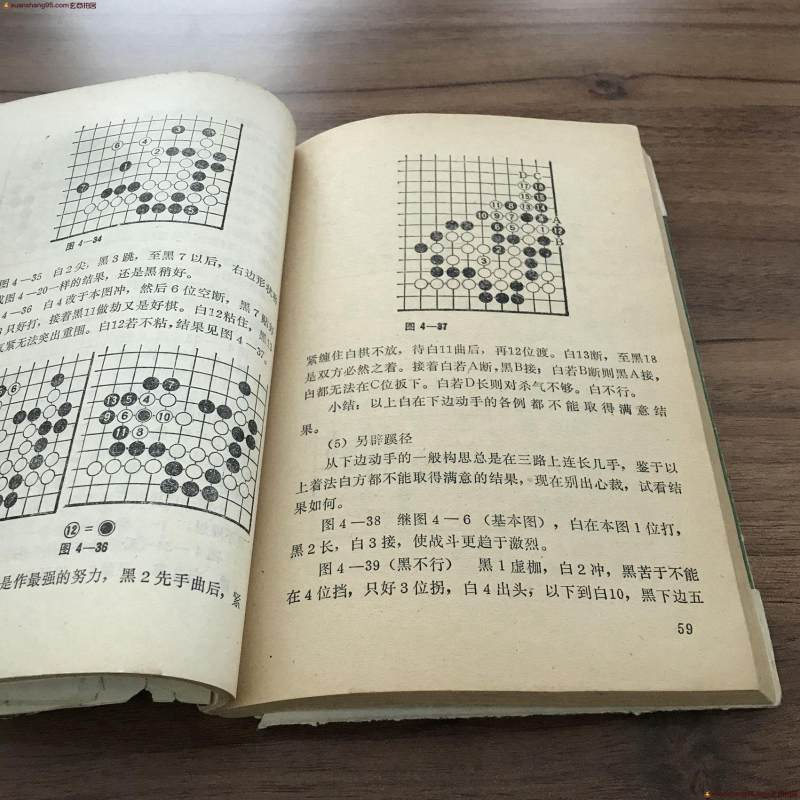 xuanshang95.com玄商书店
图 4—34
图4—35 白2尖,黑3跳,至黑7以后,右边形状
成图4—20一样的结果,还是黑稍好。
—36 白4改于本图冲,然后6位空断,黑7
6只好打,接着黑11做劫又是好棋。白12粘住,黑13
气紧无法突出重围。白12若不粘,结果见图4—37。
⑫=
图 4—36
是作最强的努力,黑2先手曲后,紧
D C
A
B
图 4—37
紧缠住白棋不放,待白11曲后,再12位渡。白13断,至黑18
是双方必然之着。接着白若A断,黑B接;白若B断则黑A接,
白都无法在C位扳下。白若D长则对杀气不够。白不行。
小结:以上白在下边动手的各例都不能取得满意结
果。
(5)另辟蹊径
从下边动手的一般构思总是在三路上连长几手,鉴于以
上着法白方都不能取得满意的结果,现在别出心裁,试看结
果如何。
图4—38 继图4—6(基本图),白在本图1位打,
黑2长,白3接,使战斗更趋于激烈。
图4—39(黑不行) 黑1虚枷,白2冲,黑苦于不能
在4位挡,只好3位拐,白4出头,以下到白10,黑下边五
59